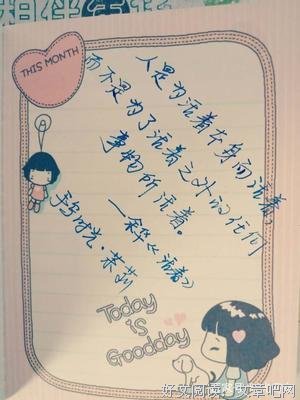 THIS MONTH
人是为活着本身而活着,
而不是为了活着之外的任何
事物所活着。
—余华《活着》
时光·茉莉
Today
is
Goodday
好文阅读 文章吧网